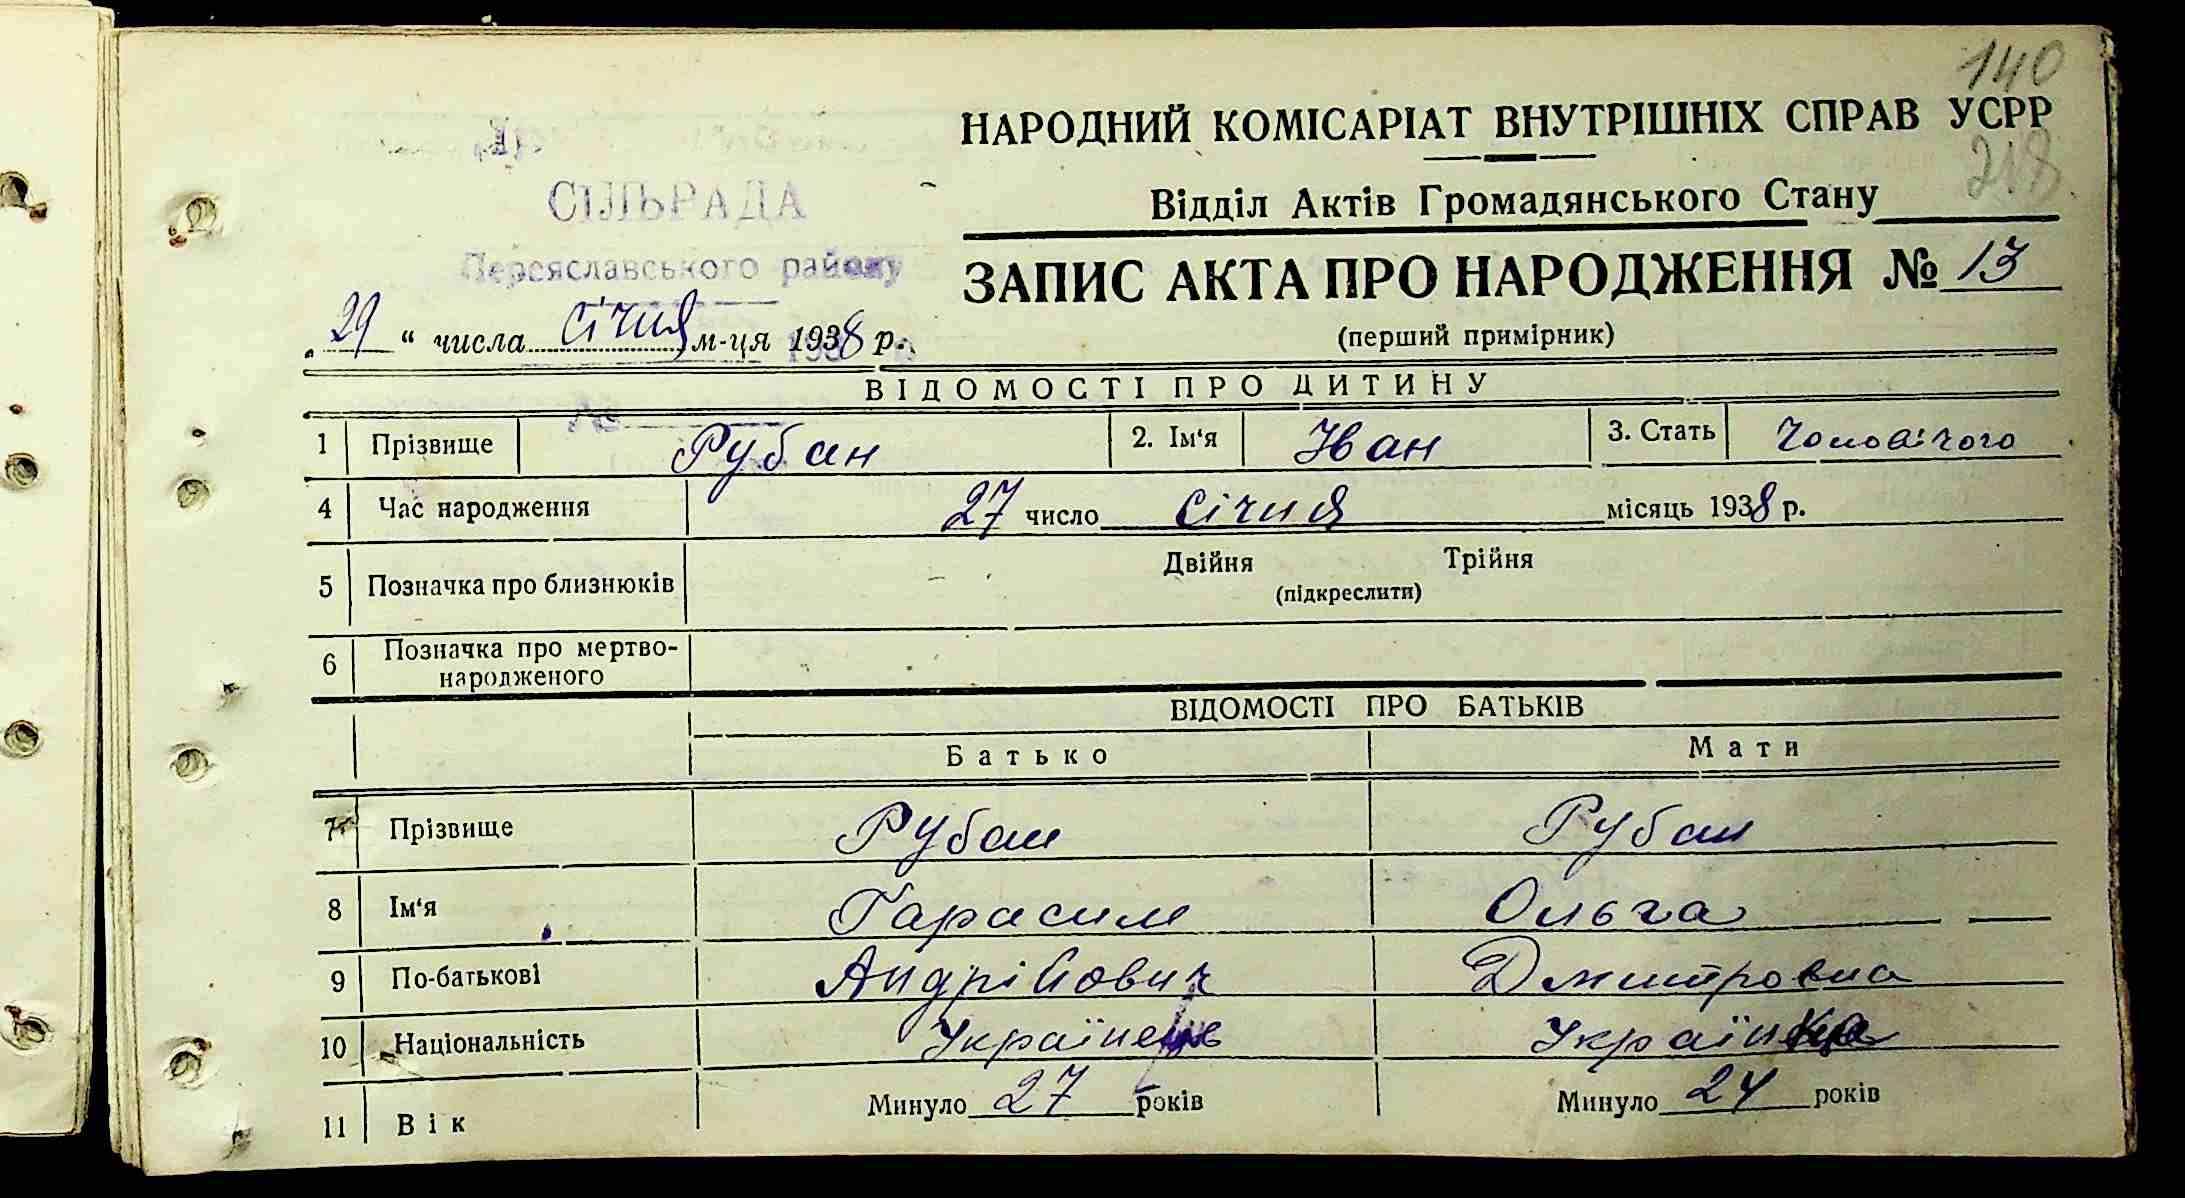 140
НАРОДНИЙ КОМІСАРІАТ ВНУТРІШНІХ СПРАВ УСРР
218
Відділ Актів Громадянського Стану
СІЛЬРАДА
Переяславського району
ЗАПИС АКТА ПРО НАРОДЖЕННЯ № 13
(перший примірник)
„ 29 “ числа січня м-ця 1938 р.
ВІДОМОСТІ ПРО ДИТИНУ
1 Прізвище Рубан 2. Ім'я Іван 3. Стать Чоловічого
4 Час народження 27 число Січня місяць 1938 р.
5 Позначка про близнюків Двійня Трійня
(підкреслити)
6 Позначка про мертво-
народженого
ВІДОМОСТІ ПРО БАТЬКІВ
Батько Мати
7 Прізвище Рубан Рубан
8 Ім'я Гарасим Ольга
9 По-батькові Андрійович Дмитровна
10 Національність Українець Українка
11 Вік Минуло 27 років Минуло 24 років